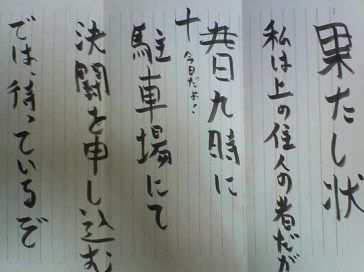 果たし状
私は上の住人の者だが
毎日九時に
十 今日だよ!
駐車場にて
決闘を申し込む
では、待っているぞ